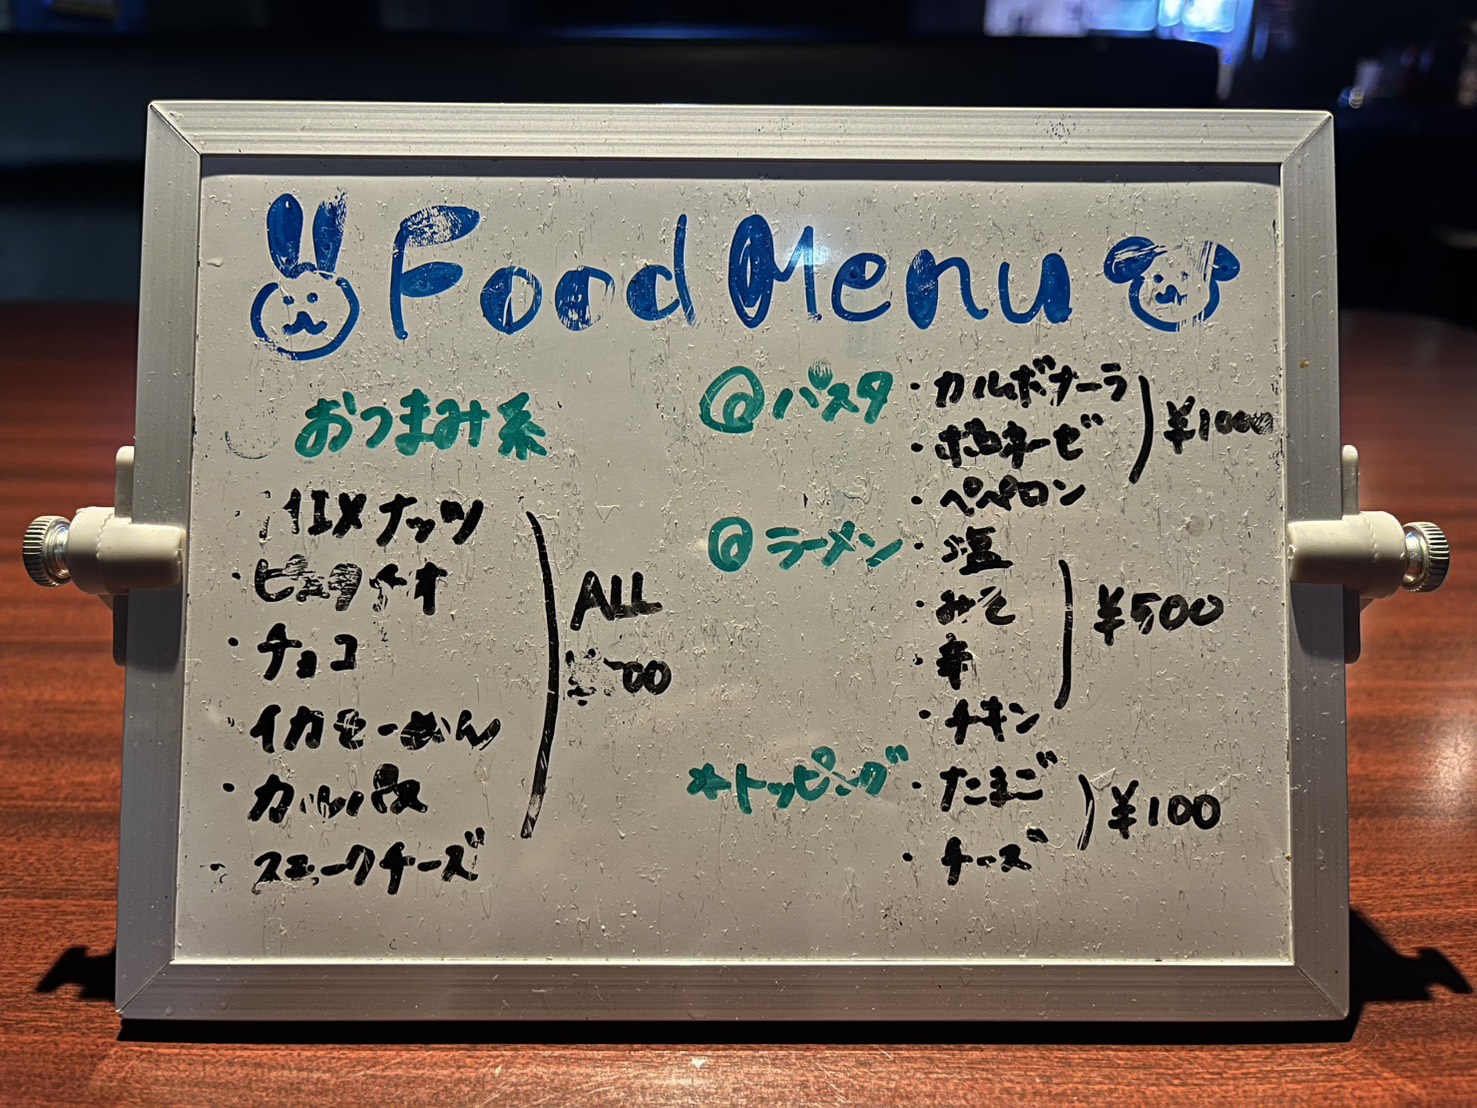 Food Menu
おつまみ系
・MIXナッツ
・ピスタチオ
・チョコ
・イカそーめん
・カルパス
・スモークチーズ
ALL
00
@パスタ
・カルボナーラ
・ボロネーゼ
・ペペロン
¥1000
@ラーメン
・塩
・みそ
・辛
・チキン
¥500
☆トッピング
・たまご
・チーズ
¥100